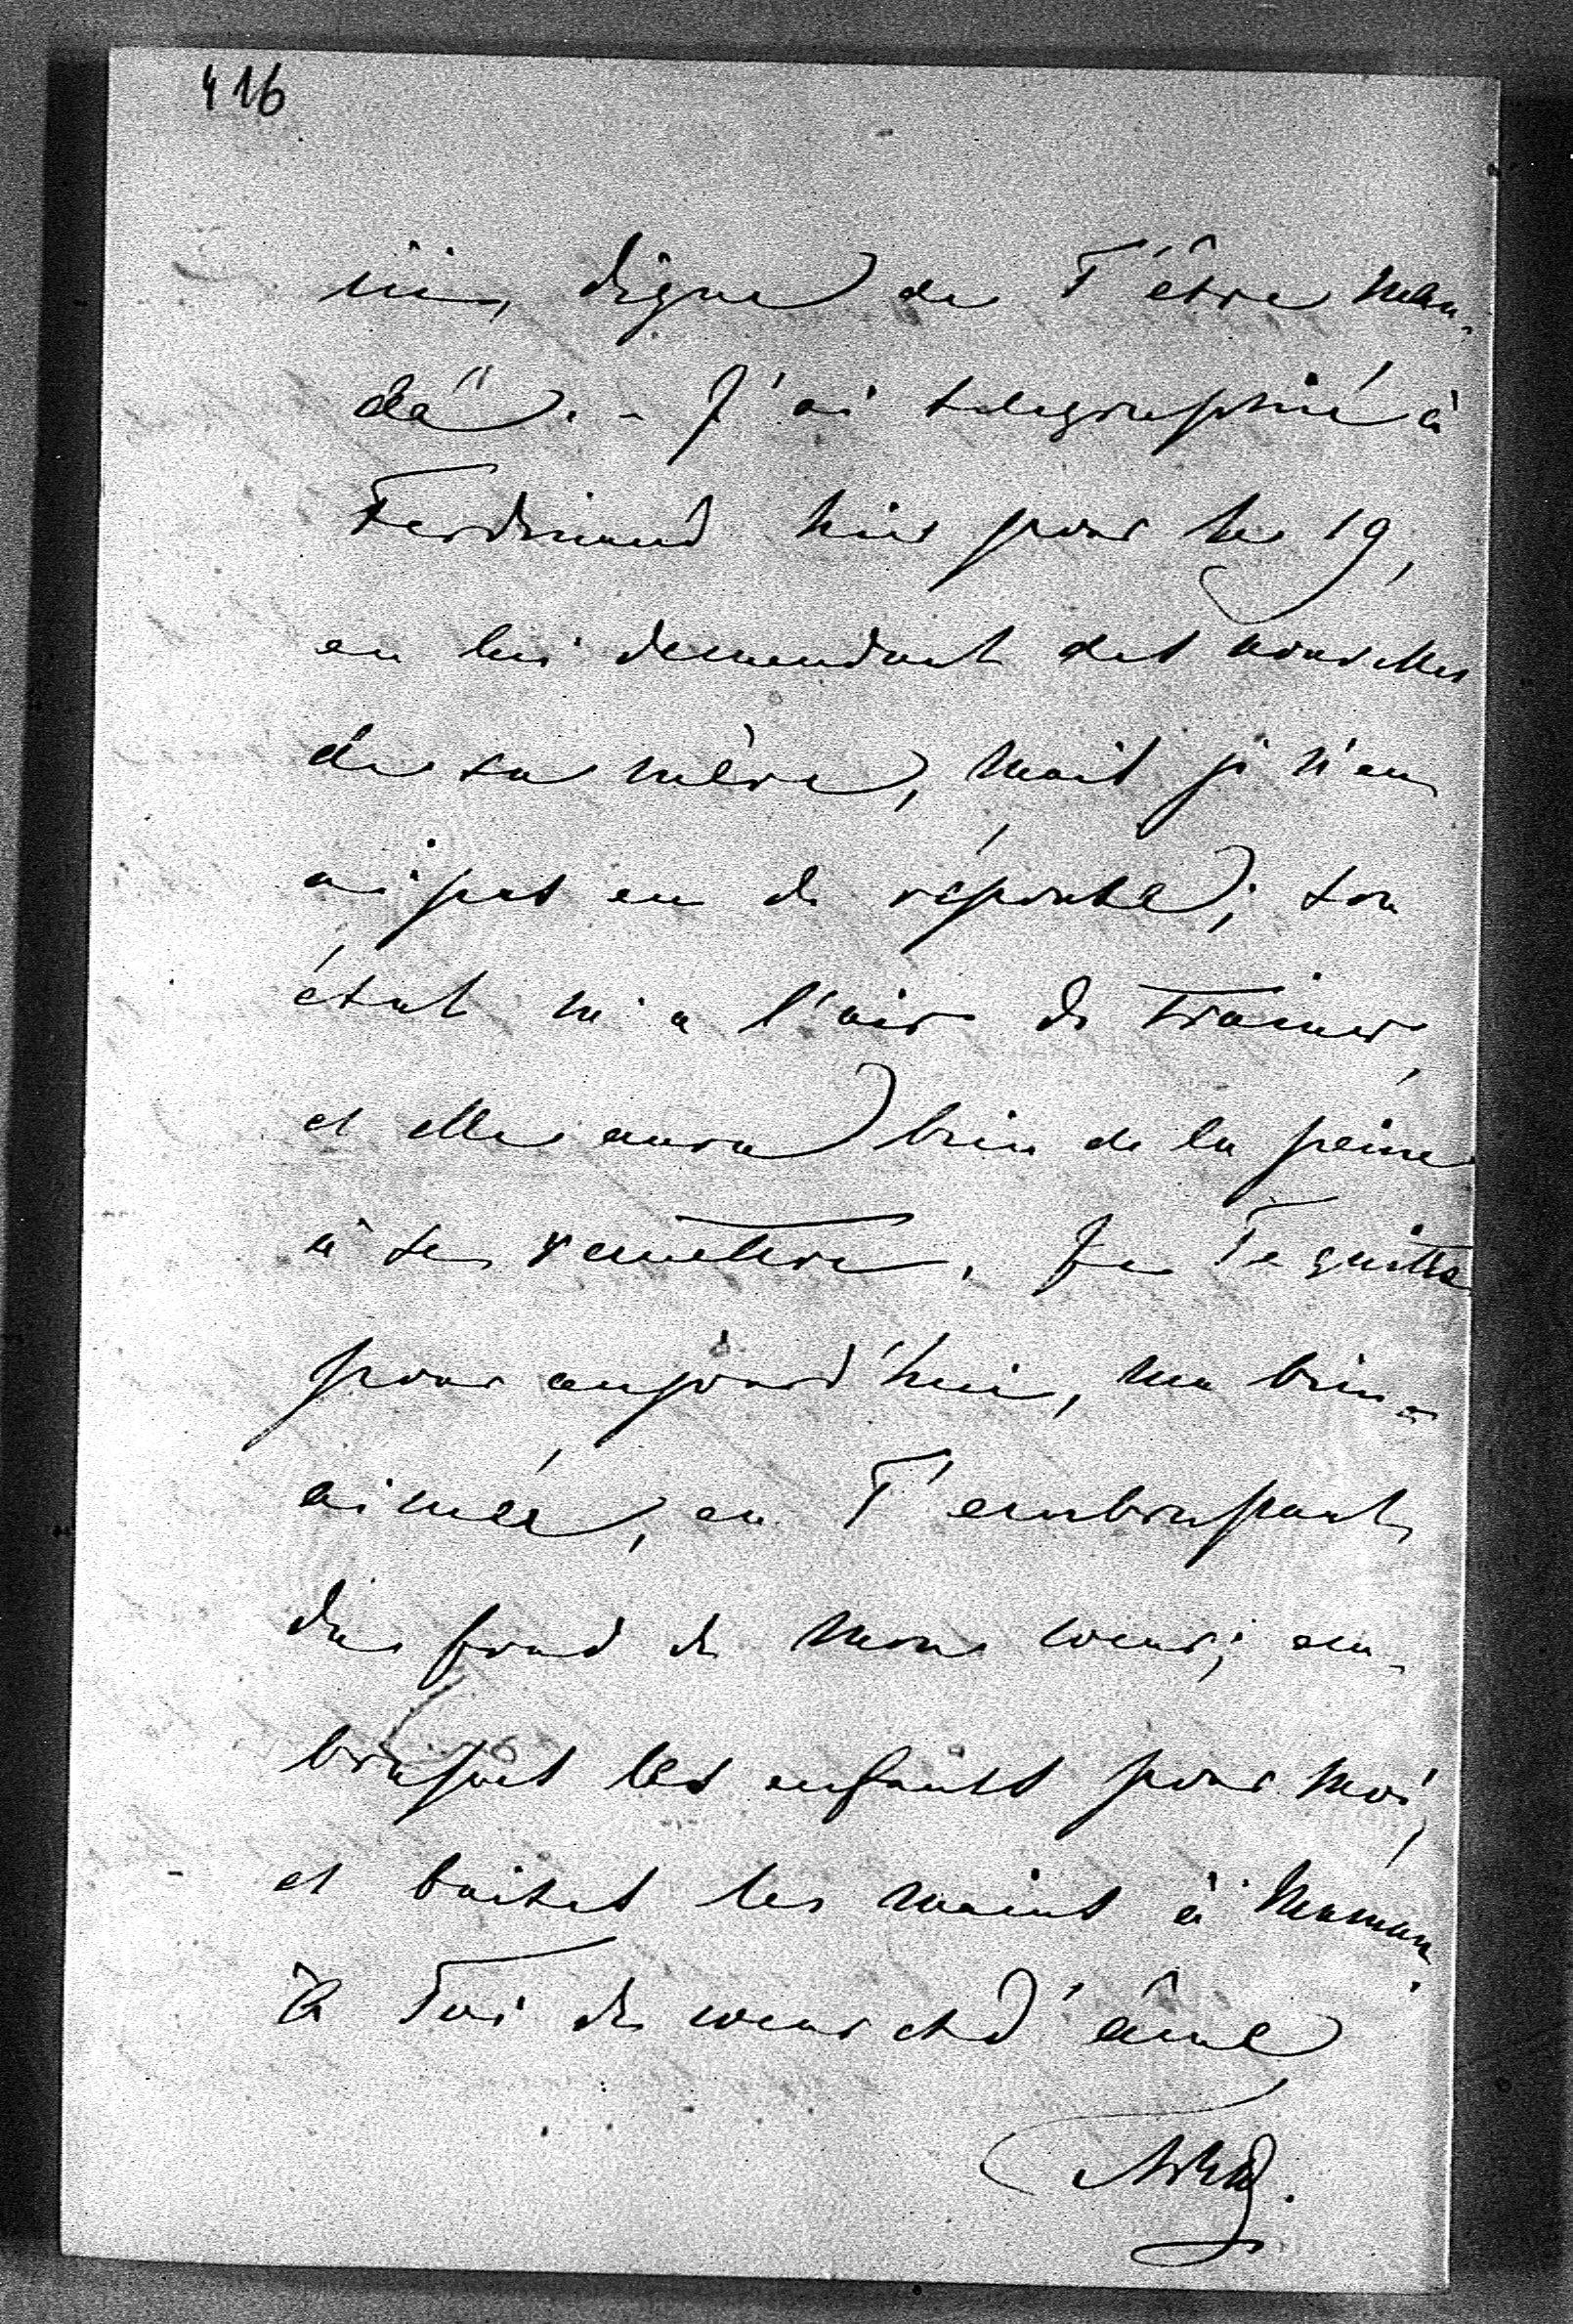 416
ici, digne de T'être man-
dé". - J'ai telegraphié à
Ferdinand hier pour le 19,
en lui demandant des nouvelles
de sa mère, mais je n'en
ai pas eu de réponse; son
état m'a l'air de trainer,
et elle aura bien de la peine
à se remettre. Je Te quitte
pour aujourd'hui, ma bien-
aimée, en T'embrassant
du fond de mon coeur; em-
brasses les enfants pour moi,
et baises les mains à Maman.
à Toi de coeur et d'âme